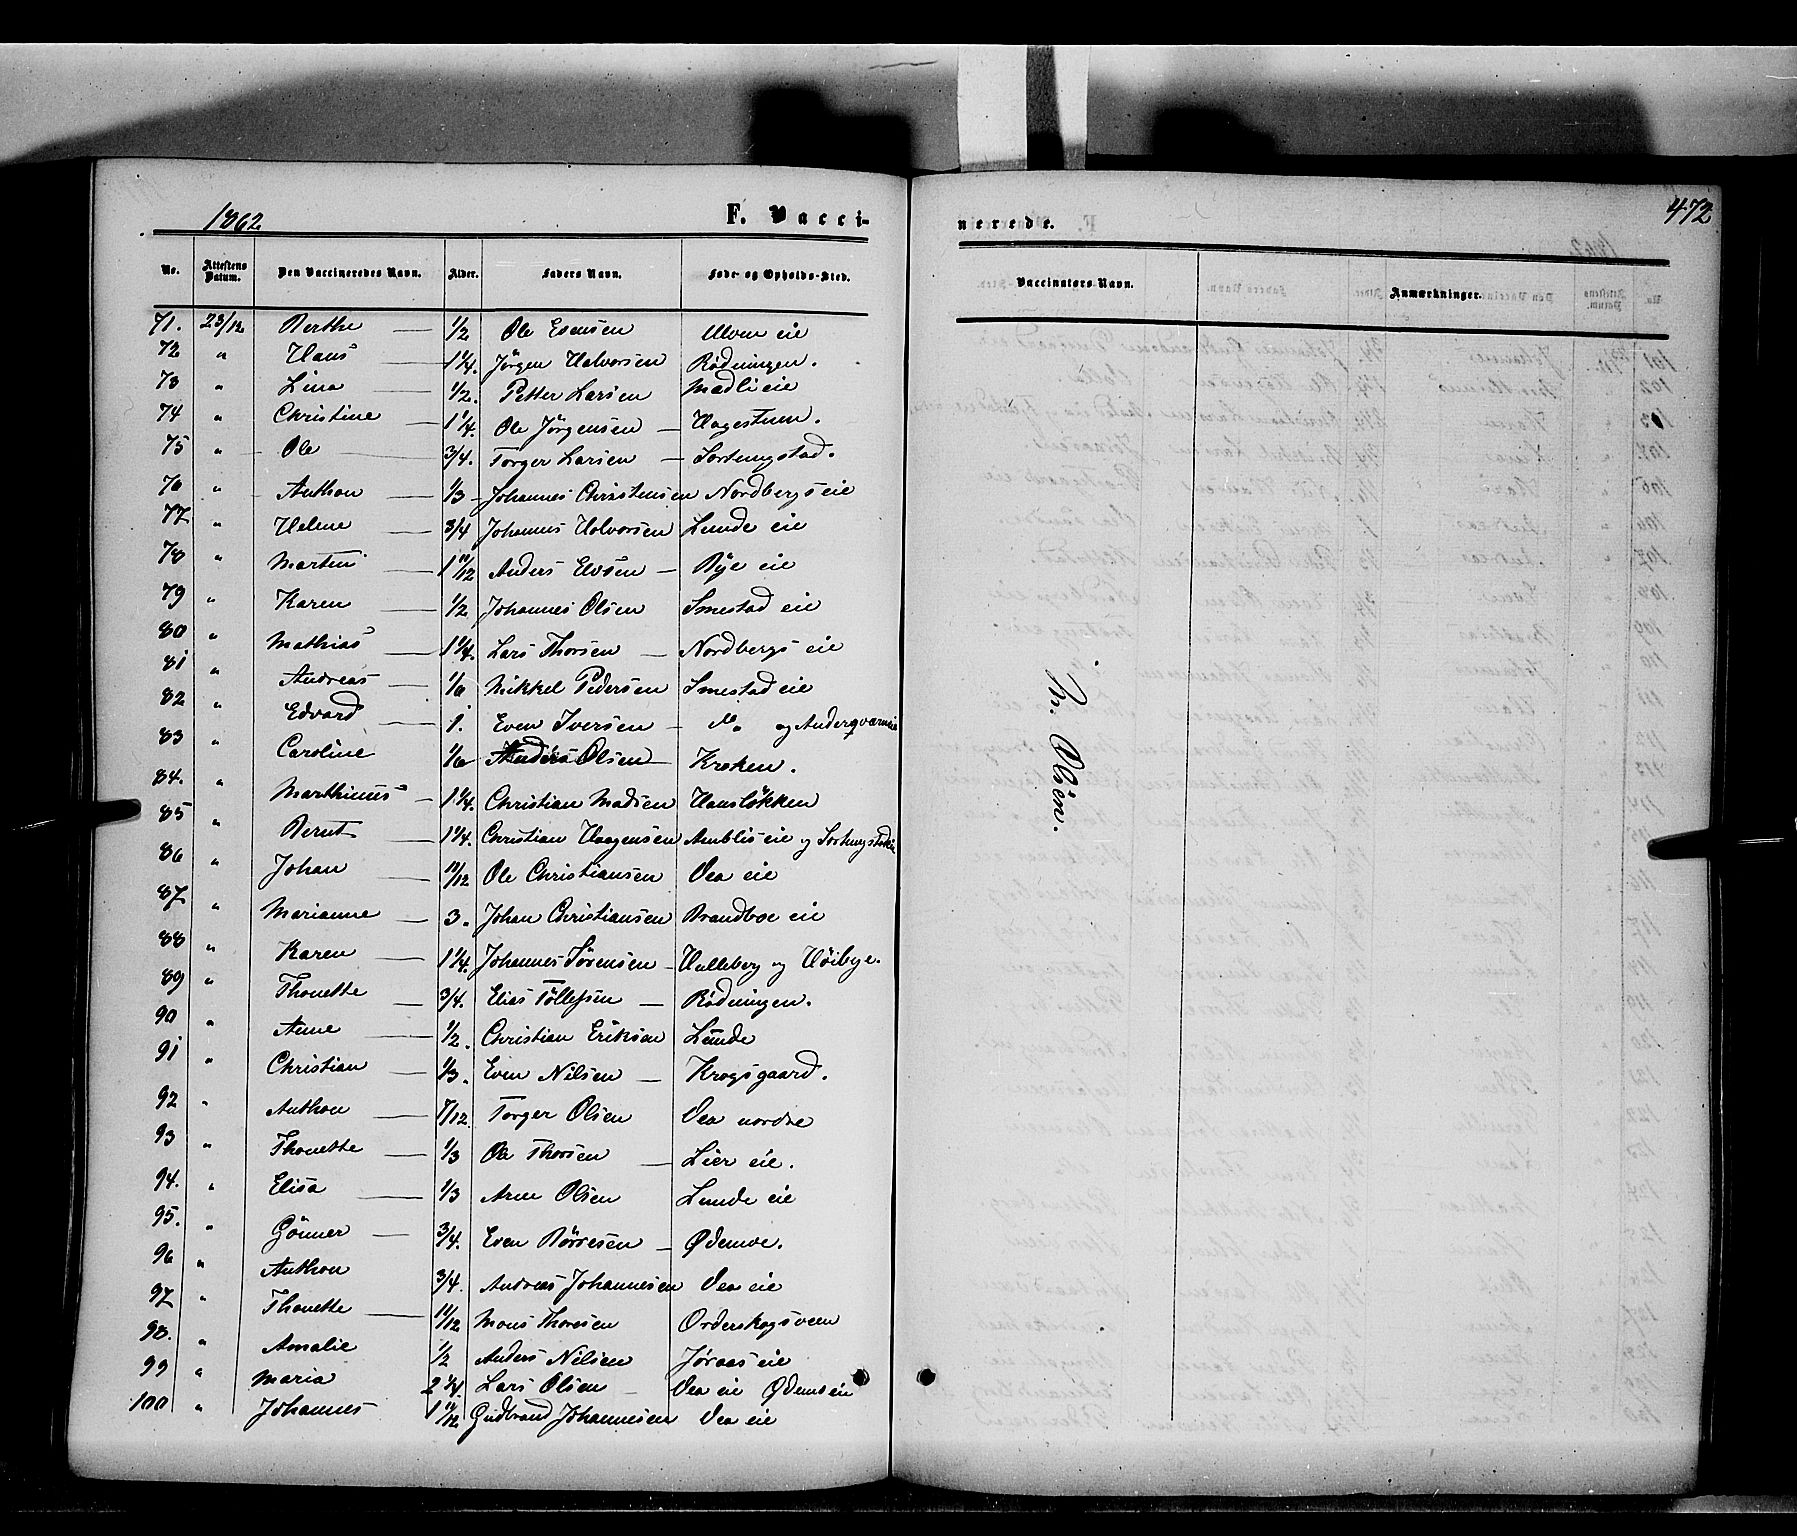 1862 F. Vacci-
nerede. 472
No. Attestens Datum. Den Vaccineredes Navn. Alder. Faders Navn. Føde- og Opholds-Sted. Vaccinators Navn. Anmærkninger.
71. 23/12 Berthe 1/2 Ole Evensen Ulven eie
72 " Hans 1 1/4. Jörgen Halvorsen Rödningen.
73 " Lina 1/2. Petter Larsen Madli eie
74 " Christine 1 1/4. Ole Jörgensen Hagestuen.
75 " Ole 3/4. Torger Larsen Sortungstad.
76 " Anthon 1/3 Johannes Christensen Nordbergs eie
77 " Helene 3/4 Johannes Halvorsen Lunde eie
78 " Martin 1 11/12 Anders Bye eie
79 " Karen 1/2 Johannes Olsen Smestad eie
80 " Mathias 1 1/4. Lars Thorsen Nordbergs eie
81 " Andreas 1/6 Mikkel Pedersen Smestad eie
82 " Edvard 1. Even Iversen og
83 " Caroline 1/6 Anders Olsen Kroken.
84. " Marthinus 1 1/4. Christian Madsen Hanslökken
85 " Bernt 1 1/4. Christian Haagensen Amblis eie og
86 " Johan 11/12 Ole Christiansen Vea eie
87 " Marianne 3. Johan Christiansen Brandboe eie
88 " Karen 1 1/4. Johannes Sörensen Hulleberg og Höibye.
89 " Thonette 3/4. Elias Tollefsen Rödningen.
90 " Anne 1/2. Christian Eriksen Lunde
91 " Christian 1/3. Even Nilsen Krogsgaard.
92 " Anthon 7/12 Torger Olsen Vea nordre
93 " Thonette 1/3 Ole Thorsen Lier eie.
94. " Elisa 1/3 Arne Olsen Lunde eie
95. " Gunner 3/4. Even Börresen Ødemoe.
96 " Anthon 3/4. Andreas Johannesen Vea eie
97 " Thonette 11/12 Mons Thoresen Orderskogsveen
98. " Amalie 1/2 Anders Nilsen Jöraas eie
99 " Maria 2 1/4. Lars Olsen Vea eie Ødemo eie
100 " Johannes 1 11/12 Gudbrand Johannesen Vea eie
N. Olsen.